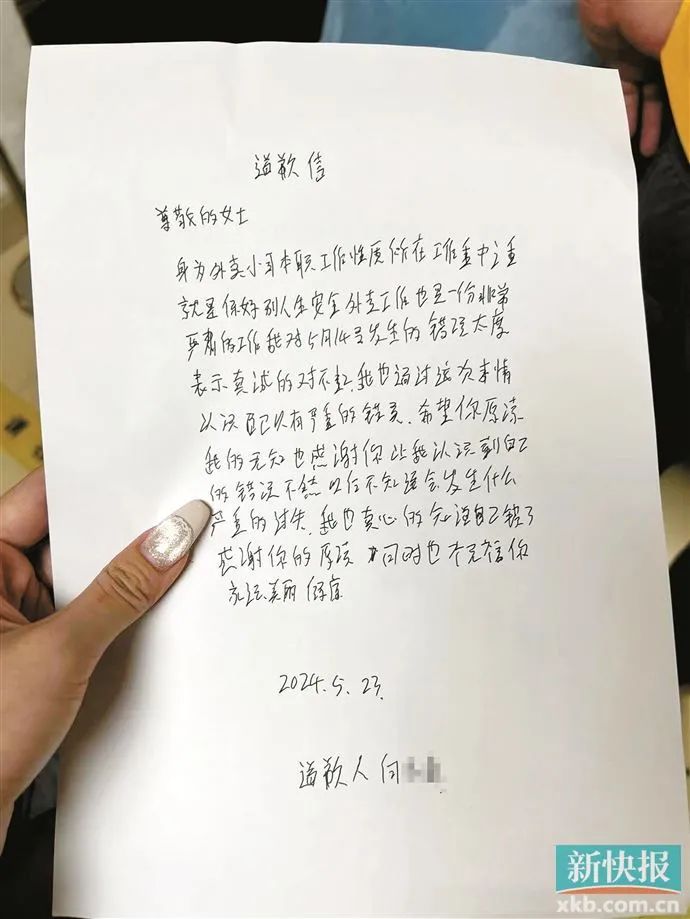 道歉信
尊敬的女士
身为外卖小哥本职工作性质所在工作重中之重
就是保好别人生安全外卖工作也是一份非常
严肃的工作我对5月14号发生的错误太度
表示真诚的对不起.我也通过这次事情
认识自己以有严重的错误.希望你原谅
我的无知也感谢你让我认识到自己
的错误不然以后不知道会发生什么
严重的过失.我也真心的知道自己错了
感谢你的原谅 同时也祝福你
永远美丽 健康
2024.5.23.
道歉人 向
新快报
xkb.com.cn